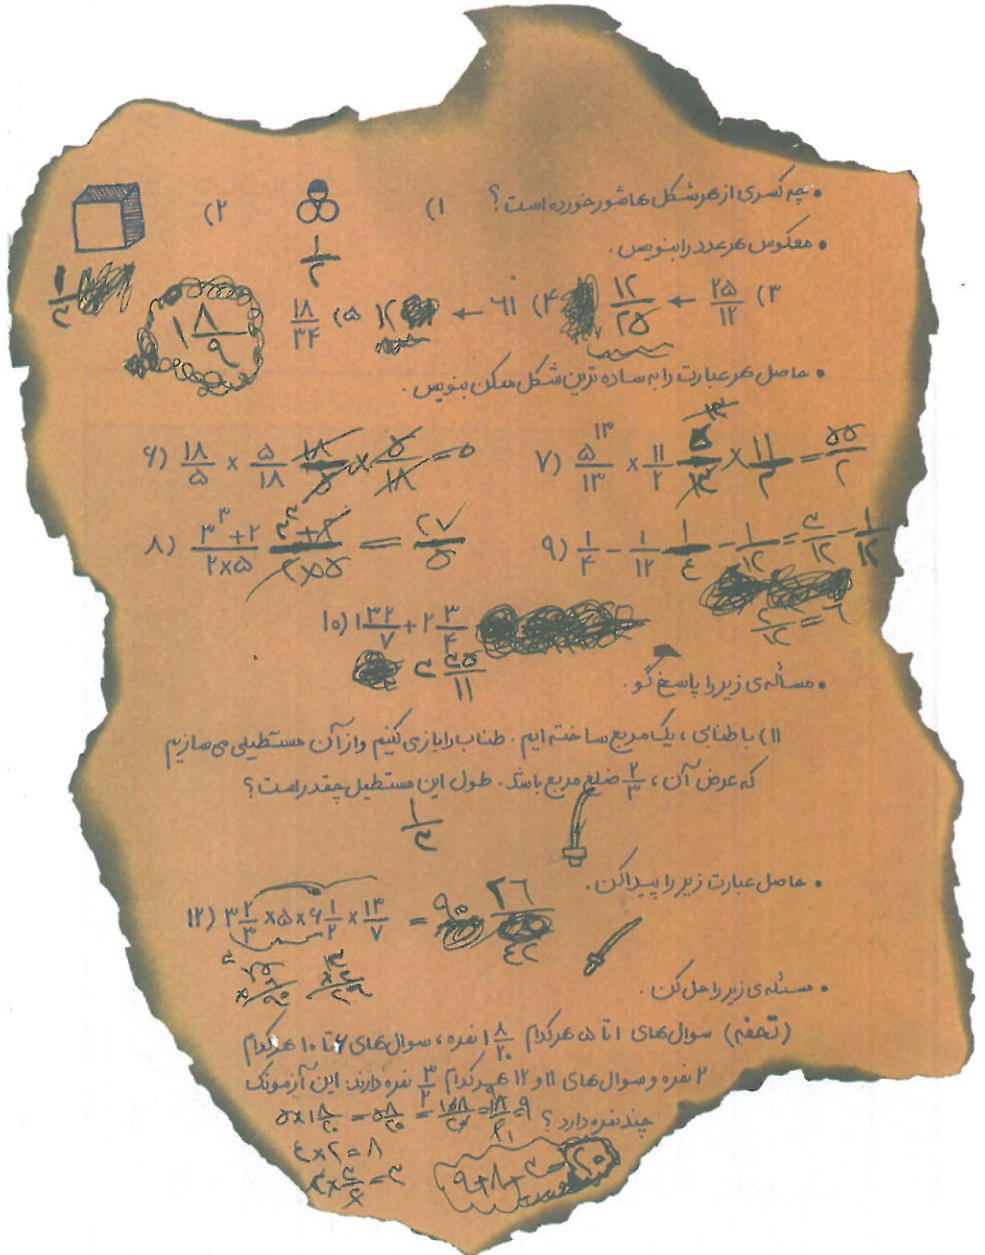 • چه کسری از هر شکل هاشور خورده است؟ ۱) ۲)
۱/۲
• معکوس هر عدد را بنویس.
۱/۳
۳) ۲۵/۱۲ ← ۱۲/۲۵ ۴) ۶۱ ← ۱۲ ۵) ۱۸/۳۴ ۱ ۸/۹
• حاصل هر عبارت را به ساده ترین شکل ممکن بنویس.
۶) ۱۸/۵ × ۵/۱۸ ۱۸/۵ × ۵/۱۸ = ۰ ۷) ۵ ۱۳/۱۳ × ۱۱/۲ × ۱۱/۲ = ۵۵/۲
۸) ۳^۳+۲/۲×۵ = ۲۷/۵ ۹) ۱/۴ - ۱/۱۲ ۱/۴ - ۱/۱۲ = ۳/۱۲ - ۱/۱۲
۲/۱۲ = ۶
۱۰) ۱ ۳۲/۷ + ۲ ۳/۴
۳ ۳۵/۱۱
• مسأله‌ی زیر را پاسخ گو.
۱۱) با طنابی، یک مربع ساخته ایم. طناب را باز می کنیم و از آن مستطیلی می سازیم
که عرض آن، ۲/۳ ضلع مربع باشد. طول این مستطیل چقدر است؟
۱/۳
• حاصل عبارت زیر را پیدا کن.
۱۲) ۳ ۲/۳ × ۵ × ۶ ۱/۲ × ۱۴/۷ = ۹۰ ۲۶/۴۲
• مسئله‌ی زیر را حل کن.
(تحفه) سوال های ۱ تا ۵ هر کدام ۱ ۸/۲۰ نمره، سوال های ۶ تا ۱۰ هر کدام
۲ نمره و سوال های ۱۱ و ۱۲ هر کدام ۳/۲ نمره دارند. این آزمونک
چند نمره دارد؟
۵×۱ ۸/۲۰ = ۵ ۸/۲۰ = ۹
۴×۲=۸
۲×۳/۲=۳
۹+۸+۳=۲۰